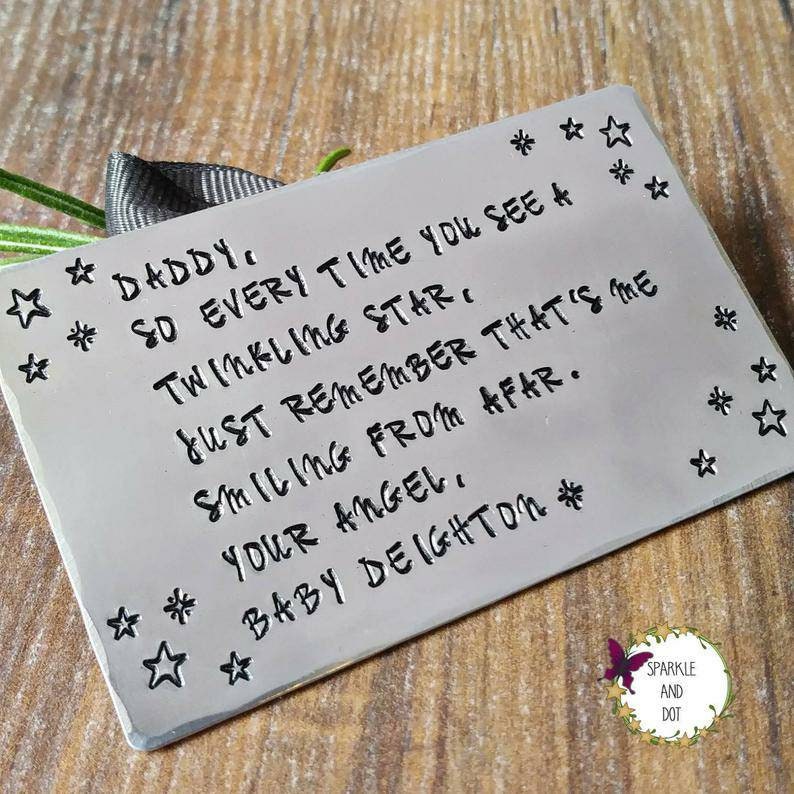 DADDY,
SO EVERY TIME YOU SEE A
TWINKLING STAR,
JUST REMEMBER THAT'S ME
SMILING FROM AFAR.
YOUR ANGEL,
BABY DEIGHTON
SPARKLE
AND
DOT